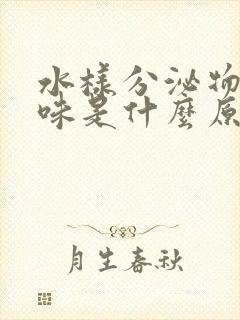 水樣分泌物
味是什麼原
月生春秋